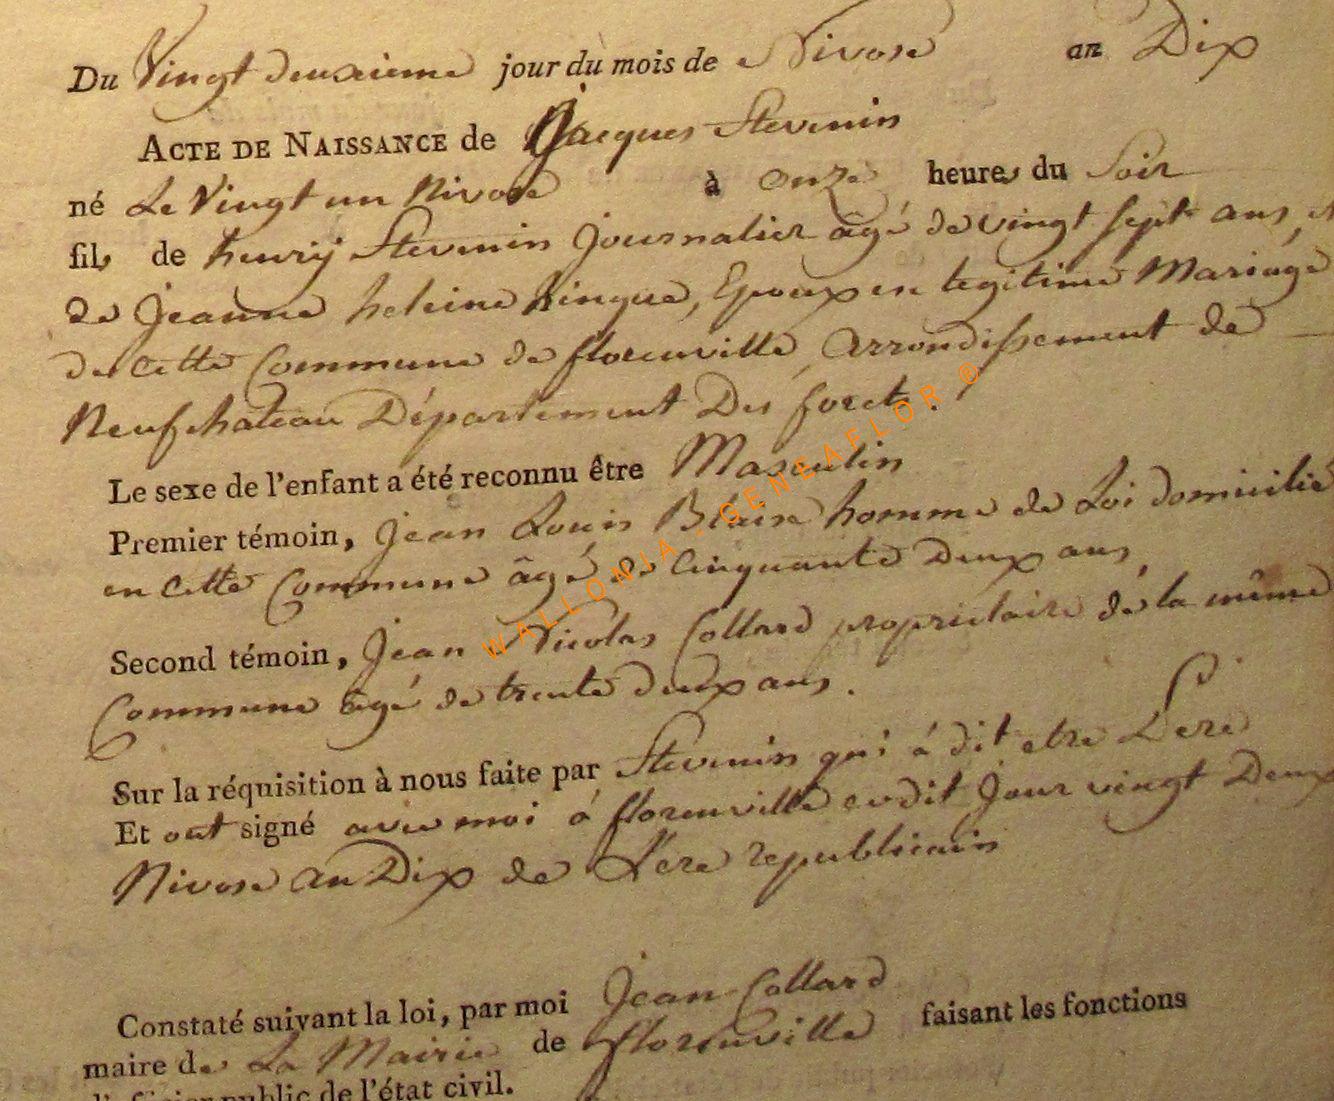 Du Vingt deuxieme jour du mois de Nivose an Dix
ACTE DE NAISSANCE de Jacques Stevenin
né Le Vingt un Nivose à onze heures du Soir
fils de henrij Stevenin Journalier âgé de vingt sept ans, et
de Jeanne heleine hingue, Epoux en legitime Mariage
de cette Commune de florenville, arrondissement de
Neufchateau Département Des forets.
Le sexe de l'enfant a été reconnu être Masculin
Premier témoin, Jean Louis Blaise homme de Loi domicilié
en cette Commune âgé de Cinquante Deux ans,
Second témoin, Jean Nicolas Collard proprietaire de la même
Commune âgé de trente deux ans.
Sur la réquisition à nous faite par Stevenin qui á dit etre Pere
Et ont signé avec moi á florenville cedit Jour vingt Deux
Nivose an Dix de L'ere republicain
Constaté suivant la loi, par moi Jean Collard
maire de La Mairie de florenville faisant les fonctions
d'officier public de l'état civil.
WALLONIA - GENEAFLOR ©